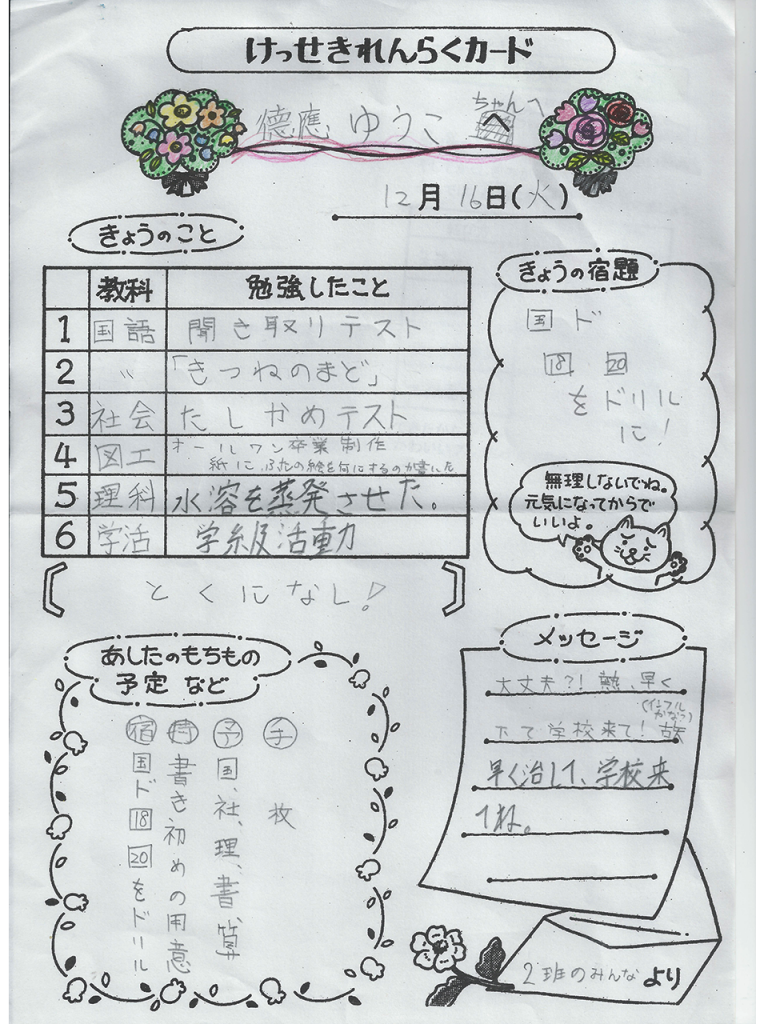 けっせきれんらくカード
德應 ゆうこ ちゃんへ
12月16日(火)
きょうのこと
教科 勉強したこと
1 国語 聞き取りテスト
2 〃 「きつねのまど」
3 社会 たしかめテスト
4 図工 オールワン卒業制作
紙に、ふたの絵を何にするのか書いた
5 理科 水溶を蒸発させた。
6 学活 学級活動
とくになし!
きょうの宿題
国ド
18 20
をドリル
に!
無理しないでね。
元気になってからで
いいよ。
あしたのもちもの
予定 など
手 枚
予 国、社、理、書、算
持 書き初めの用意
宿 国ド 18 20 をドリル
メッセージ
大丈夫?!熱、早く
(インフル
かなっ)
下て学校来て!
早く治して、学校来
てね。
2班のみんなより